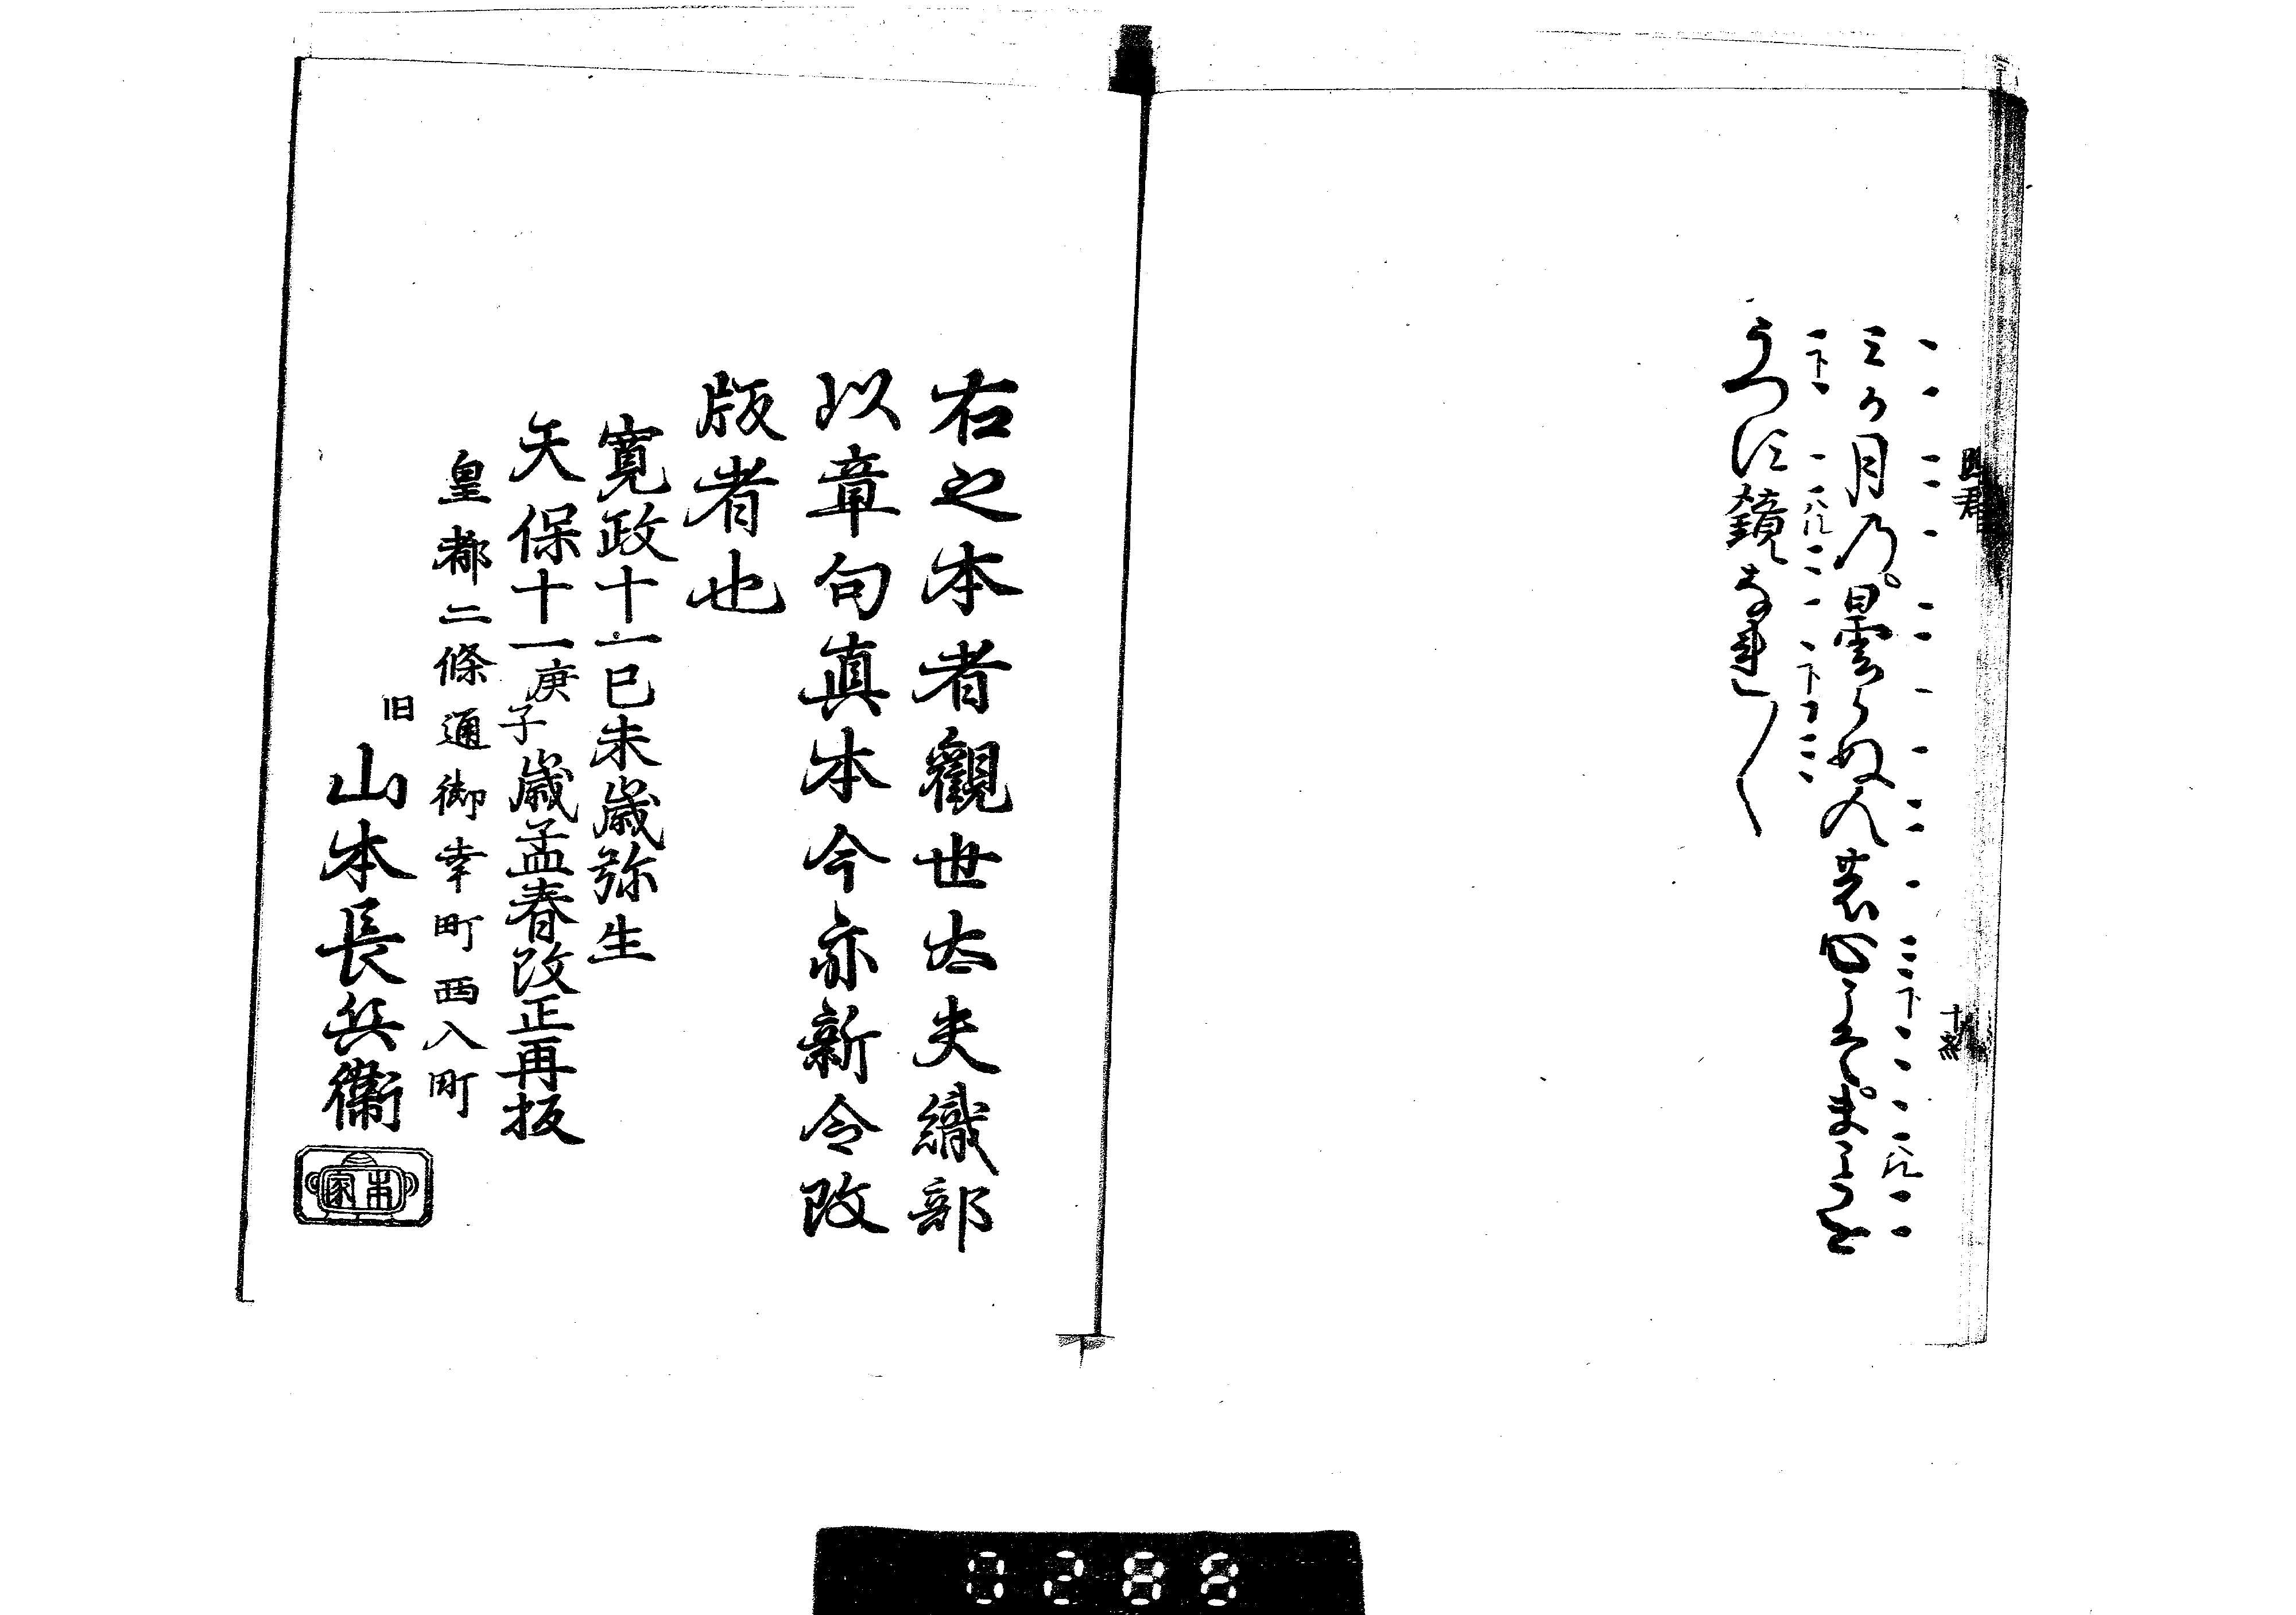 三か月の曇らぬ人の心こそまことを
うつす鏡なれ〳〵
右之本者觀世太夫織部
以章句真本今亦新令改
版者也
寛政十一己未歳弥生
天保十一庚子歳孟春改正再板
皇都二條通御幸町西入町
旧
山本長兵衞
本家